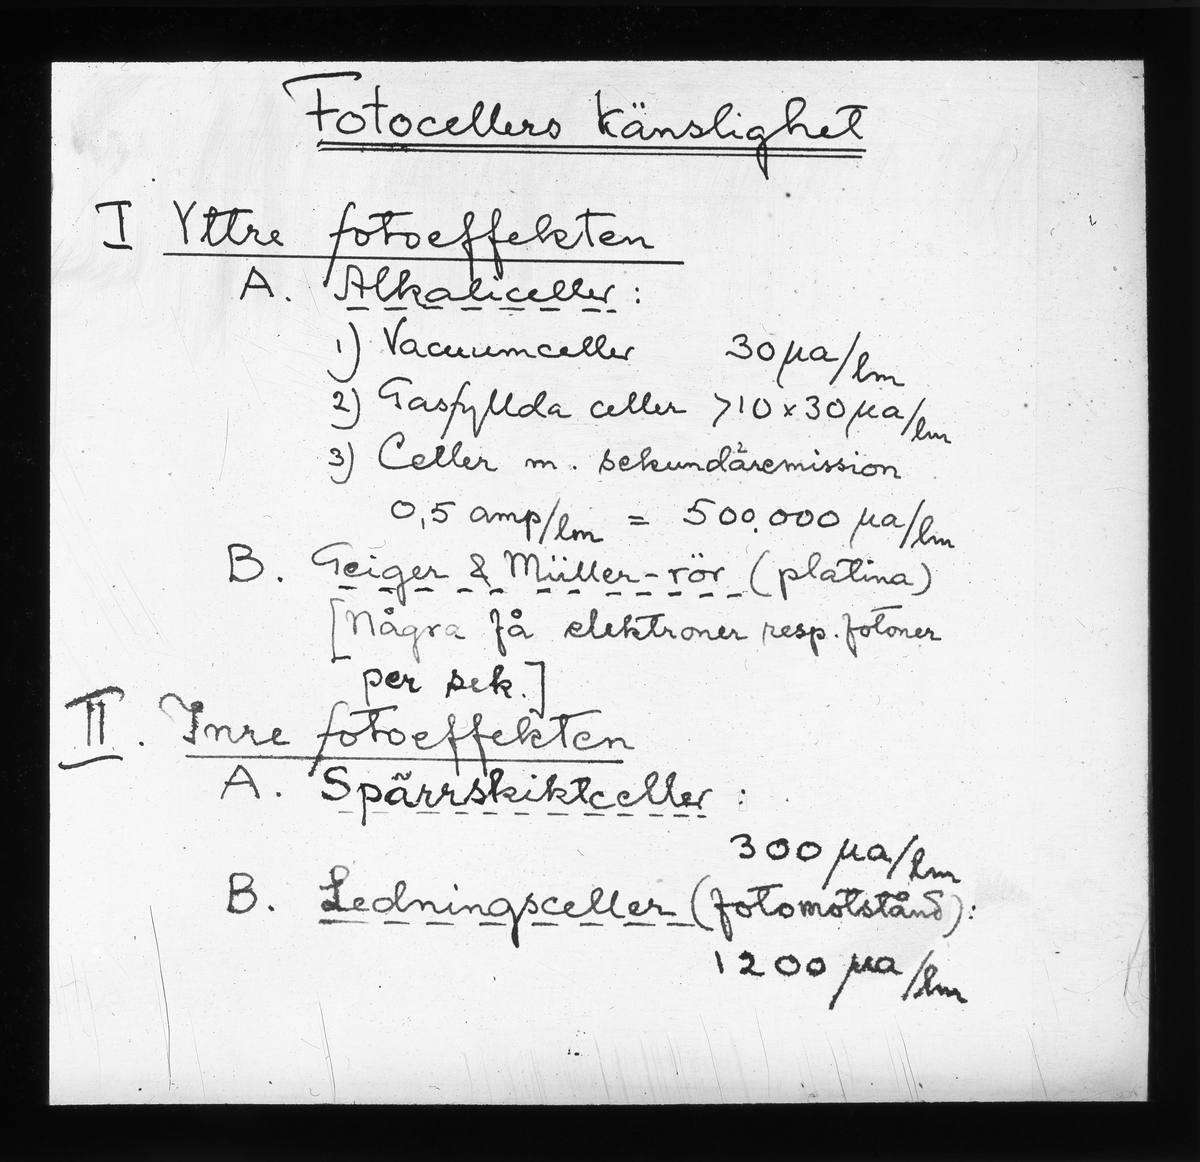 Fotocellers känslighet
I Yttre fotoeffekten
A. Alkaliceller:
1) Vacuumceller 30 µa/lm
2) Gasfyllda celler >10 x 30 µa/lm
3) Celler m. sekundäremission
0,5 amp/lm = 500.000 µa/lm
B. Geiger & Müller-rör (platina)
[Några få elektroner resp. fotoner
per sek.]
II. Inre fotoeffekten
A. Spärrskiktceller :
300 µa/lm
B. Ledningsceller (fotomotstånd):
1200 µa/lm